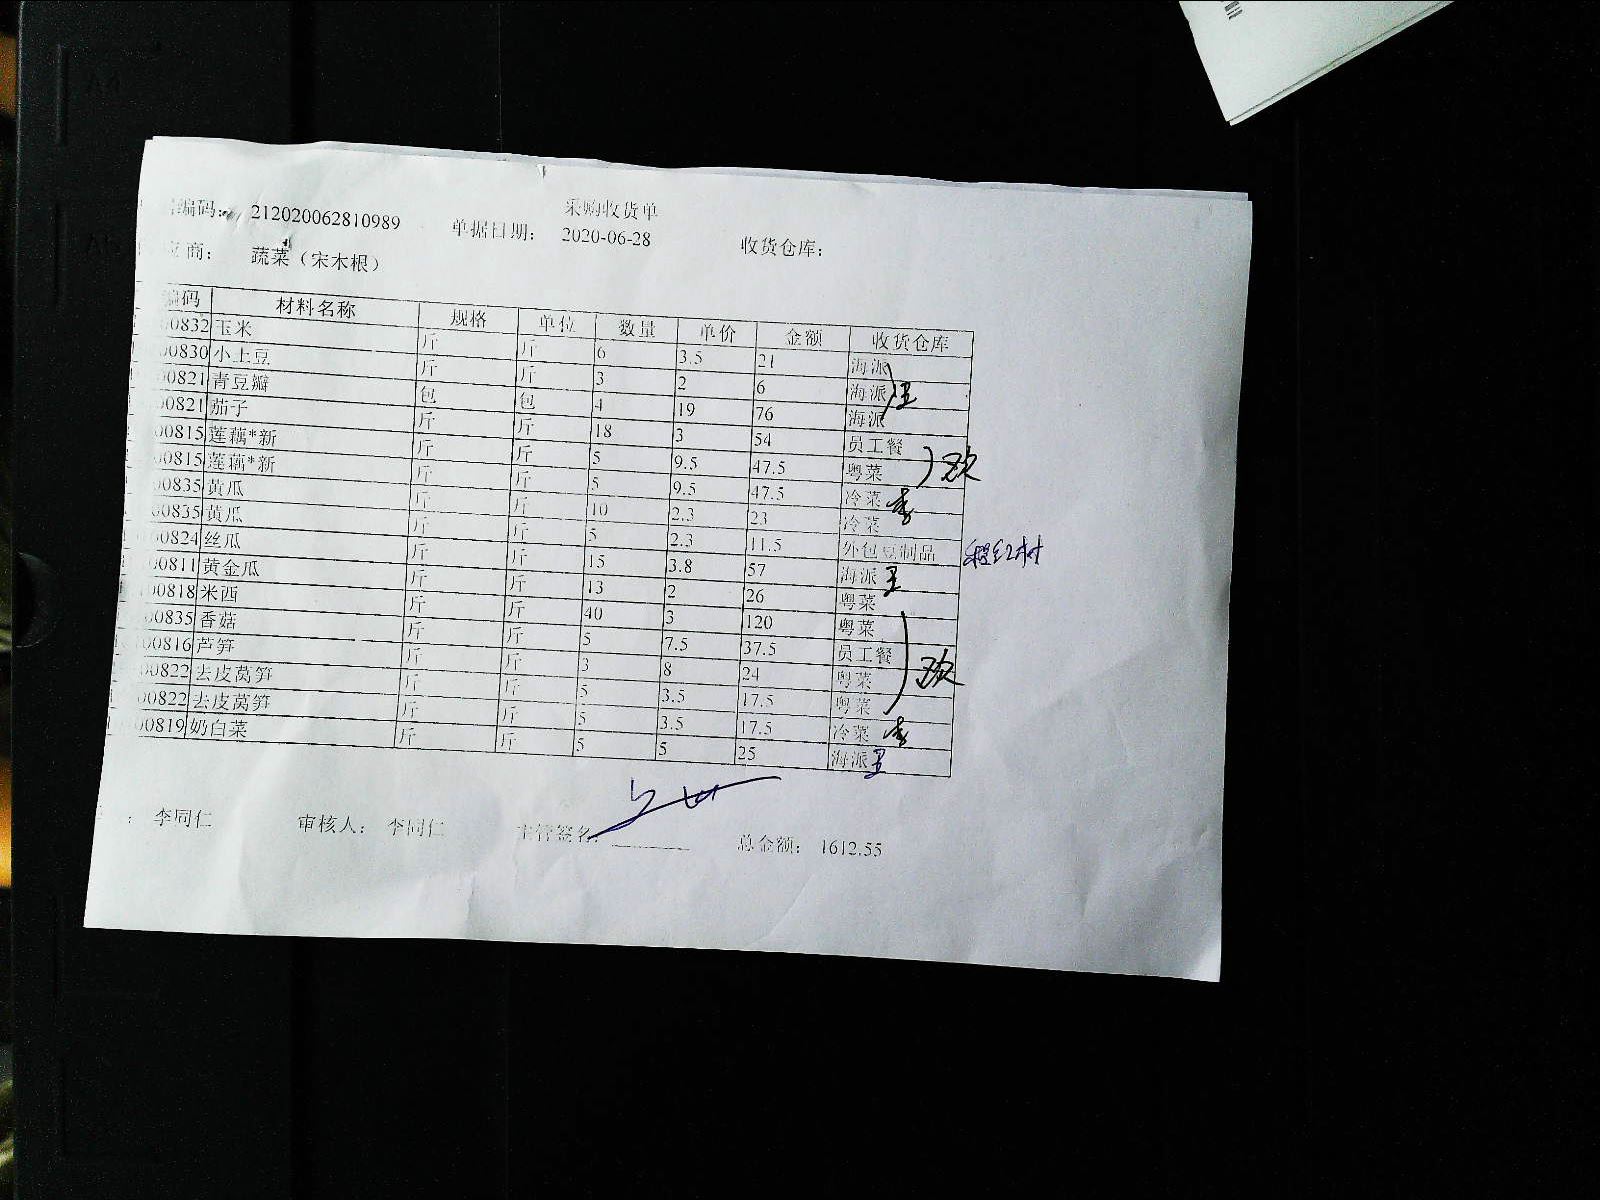 采购收货单
编码: 212020062810989 单据日期: 2020-06-28 收货仓库:
应商: 蔬菜（宋木根）
编码 材料名称 规格 单位 数量 单价 金额 收货仓库
00832 玉米 斤 斤 6 3.5 21 海派
00830 小土豆 斤 斤 3 2 6 海派 王
00821 青豆瓣 包 包 4 19 76 海派
00821 茄子 斤 斤 18 3 54 员工餐
00815 莲藕*新 斤 斤 5 9.5 47.5 粤菜
00815 莲藕*新 斤 斤 5 9.5 47.5 冷菜
00835 黄瓜 斤 斤 10 2.3 23 冷菜
00835 黄瓜 斤 斤 5 2.3 11.5 外包豆制品
00824 丝瓜 斤 斤 15 3.8 57 海派 王
00811 黄金瓜 斤 斤 13 2 26 粤菜
00818 米西 斤 斤 40 3 120 粤菜
00835 香菇 斤 斤 5 7.5 37.5 员工餐
00816 芦笋 斤 斤 3 8 24 粤菜
00822 去皮莴笋 斤 斤 5 3.5 17.5 粤菜
00822 去皮莴笋 斤 斤 5 3.5 17.5 冷菜
00819 奶白菜 斤 斤 5 5 25 海派 王
: 李同仁 审核人: 李同仁 主管签名: 总金额: 1612.55